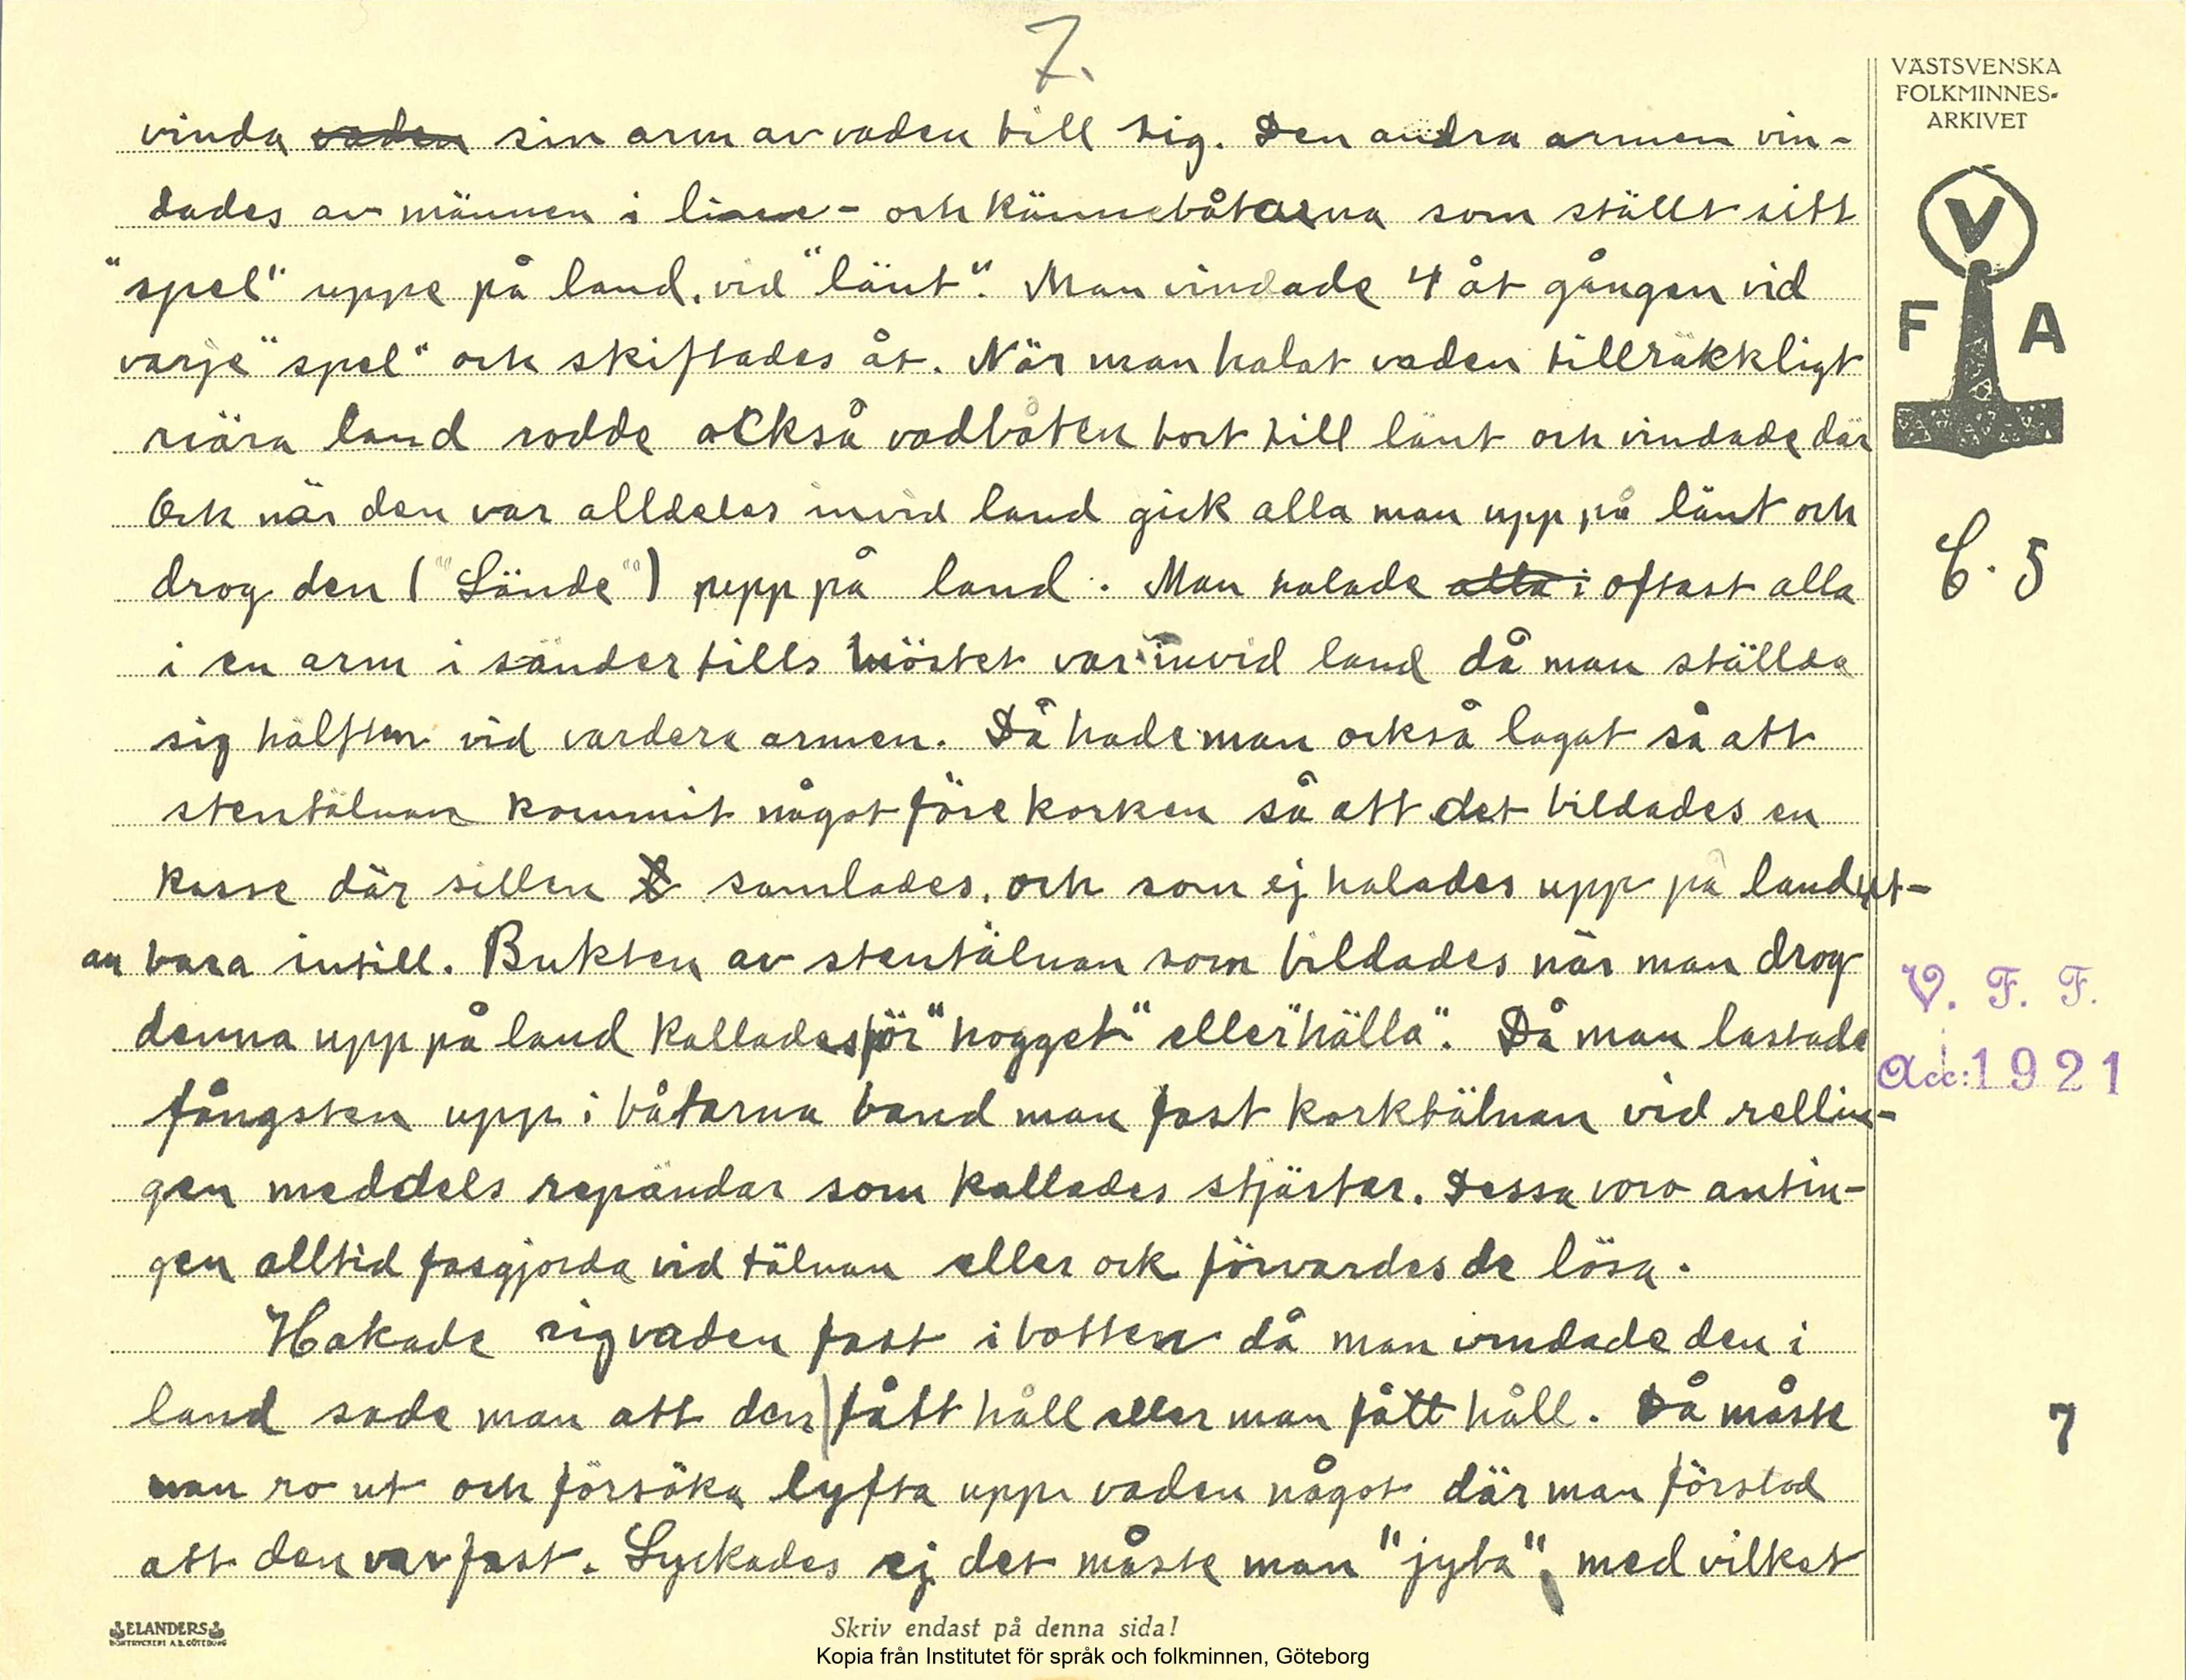 7.
VÄSTSVENSKA
FOLKMINNES-
ARKIVET
V
F A
vinda vaden sin arm av vaden till sig. Den andra armen vin-
dades av männen i linne- och kännebåtarna som ställt sitt
"spel" uppe på land, vid "länt". Man vindade 4 åt gången vid
varje "spel" och skiftades åt. När man halat vaden tillräkkligt
nära land rodde också vadbåten bort till länt och vindade där
Och när den var alldeles invid land gick alla man upp på länt och
drog den ("Lände") upp på land. Man halade alla i oftast alla
i en arm i sänder tills möstet var invid land då man ställde
sig hälften vid vardera armen. Då hade man också lagat så att
stentälnan kommit något före korken så att det bildades en
kasse där sillen samlades, och som ej halades upp på land ut-
an bara intill. Bukten av stentälnan som bildades när man drog
denna upp på land kallades för "hogget" eller "hälla". Då man lastade
fångsten upp i båtarna band man fast korktälnan vid rellin-
gen meddels repändar som kallades stjärtar. Dessa voro antin-
gen alltid fasgjorda vid tälnan eller ock förvardes de lösa.
Hakade sig vaden fast i botten då man vindade den i
land sade man att den fått håll eller man fått håll. Då måste
man ro ut och försöka lyfta upp vaden något där man förstod
att den var fast. Lyckades ej det måste man "jyta", med vilket
C. 5
V. F. F.
Acc: 1921
7
ELANDERS
BOKTRYCKERI A.B. GÖTEBORG
Skriv endast på denna sida!
Kopia från Institutet för språk och folkminnen, Göteborg